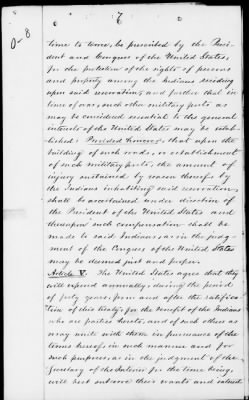 7
0-8
time to time, be prescribed by the Presi-
dent and Congress of the United States,
for the protection of the rights of persons
and property among the Indians residing
upon said reservation, and further that in
time of war, such other military posts as
may be considered essential to the general
interests of the United States may be estab-
lished: Provided however, that upon the
building of such roads, or establishment
of such military posts, the amount of
injury sustained by reason thereof by
the Indians inhabiting said reservation
shall be ascertained under direction of
the President of the United States and
thereupon such compensation shall be
made to said Indians, as in the judg-
ment of the Congress of the United States
may be deemed just and proper.
Article V. The United States agree that they
will expend annually, during the period
of forty years, from and after the ratifica-
tion of this treaty, for the benefit of the Indians
who are parties hereto, and of such others as
may unite with them in pursuance of the
terms hereof, in such manner and for
such purposes, as in the judgment of the
Secretary of the Interior for the time being,
will best subserve their wants and interests